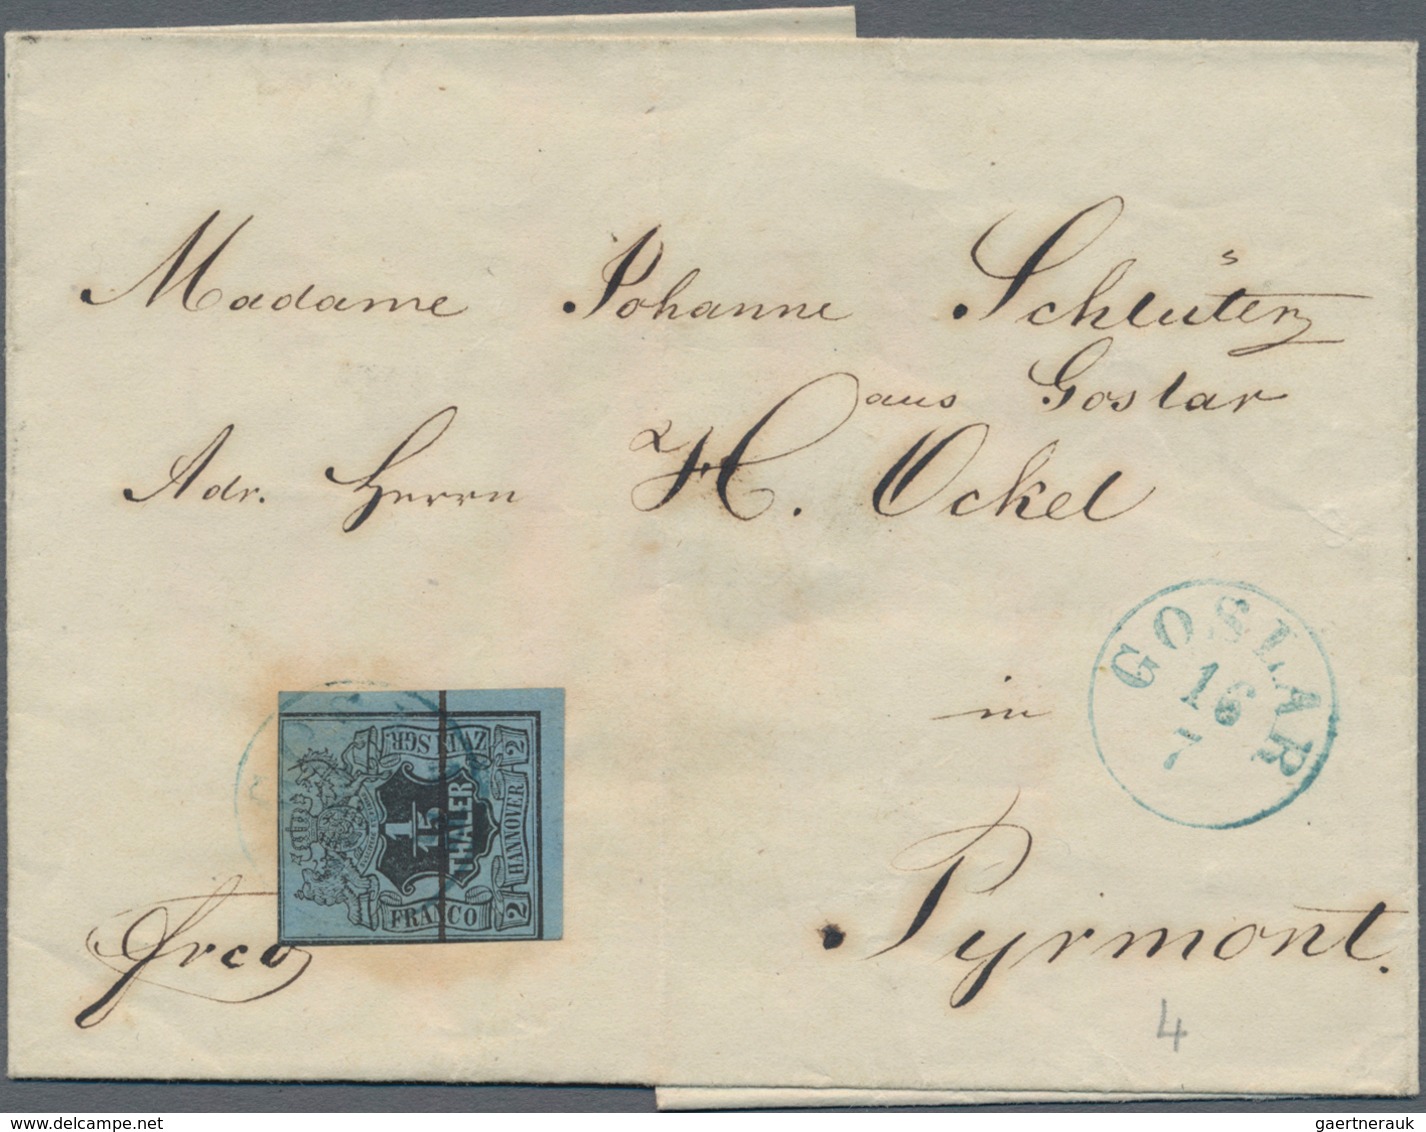 Madame Johanne Schlüter
aus Goslar
Adr. Herrn H. Ockel
in
Pyrmont.
Frco
GOSLAR
16
7
ZWEI SGR.
1
15
THALER
HANNOVER
2
2
FRANCO
4
delcampe.net
gaertnerauk